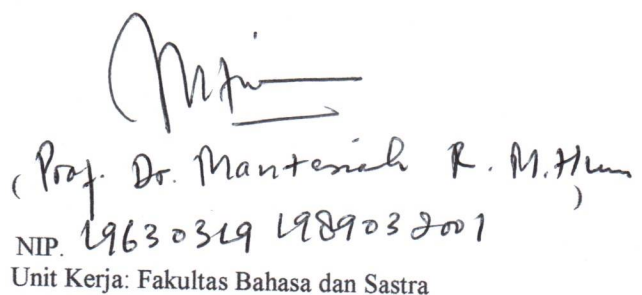 ( Prof. Dr. Mantasiah R. M.Hum )
NIP. 19630319 1989032001
Unit Kerja: Fakultas Bahasa dan Sastra